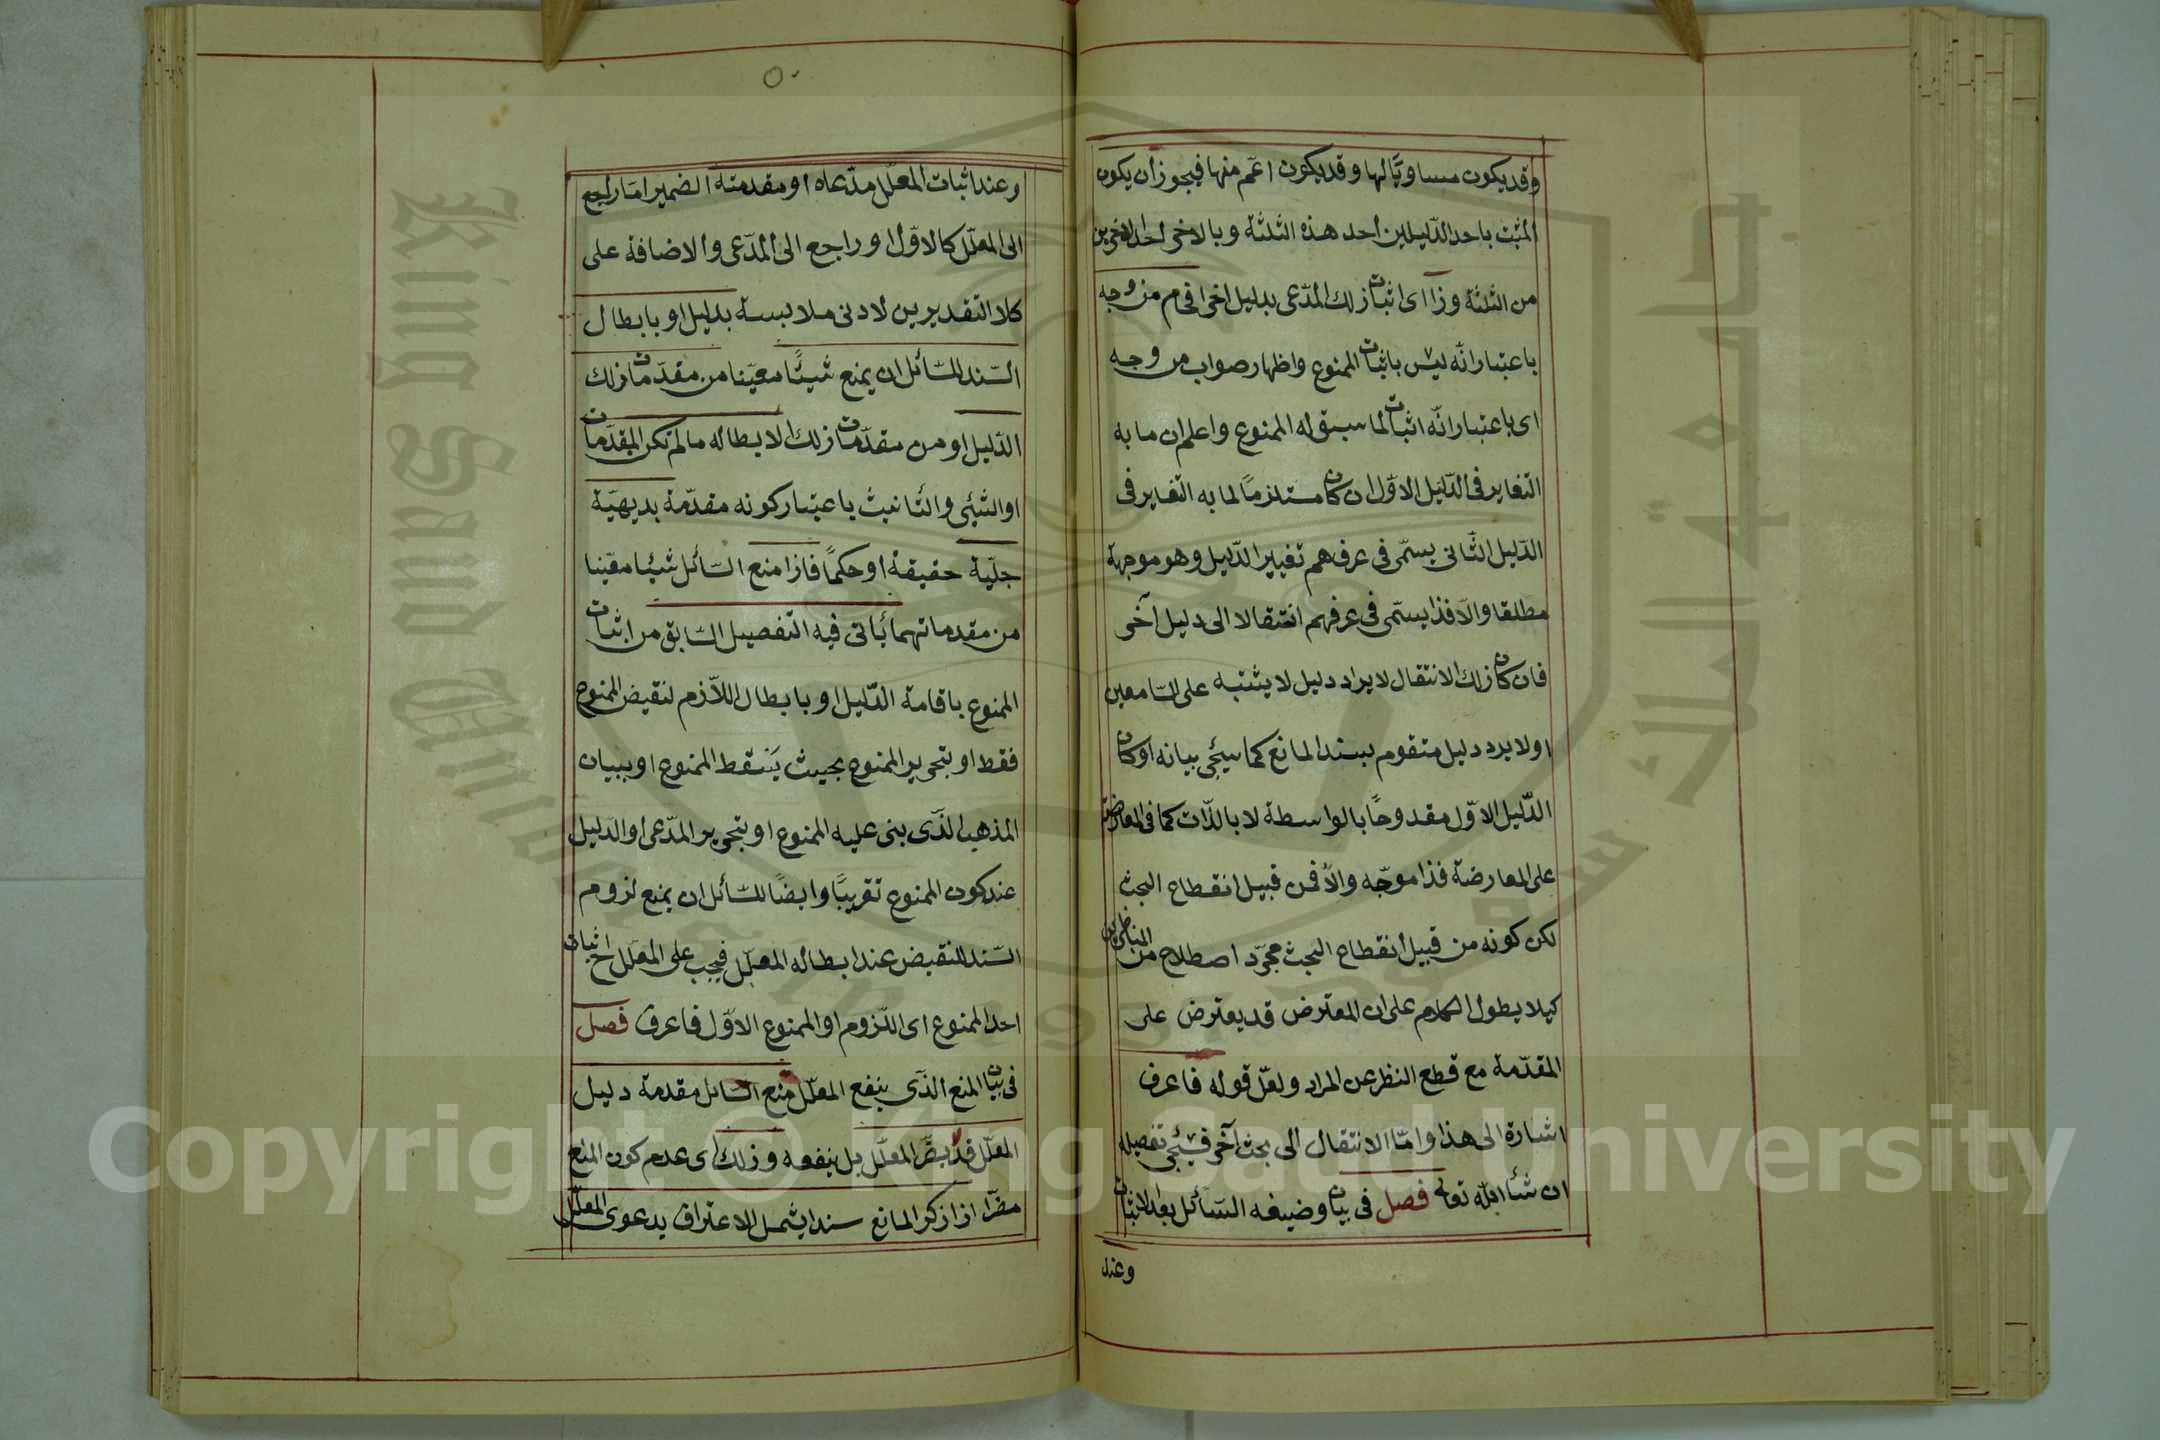 وقد يكون مساويًا لها وقد يكون اعم منها فيجوز أن يكون
المثبت باحد الدّليلين أحد هذه الثلثة وبالاخر احد الاخرين
من الثلثة وذا اى اثبات ذلك المدّعى بدليل اخر افحام من وجه
باعتبار انّه ليس باثبات الممنوع واظهار صواب من وجه
اى باعتبار انّه اثبات لما سبق له الممنوع واعلم ان ما به
التغاير فى الدّليل الاوّل ان كان مستلزمًا لما به التغاير فى
الدّليل الثّانى يسمّى فى عرفهم تغيير الدّليل وهو موجهة
مطلقا والّا فذا يسمّى فى عرفهم انتقالا الى دليل آخر
فان كان ذلك الانتقال لايراد دليل لا يشتبه على السّامعين
او لايرد دليل متقوم بسند المانع كما سيئجى بيانه او كان
الدّليل الاوّل مقدوحًا بالواسطة لا بالذّات كما فى المعارضة
على المعارضة فذا موجّه والّا فمن قبيل انقطاع البحث
لكن كونه من قبيل أنقطاع البحث مجرّد اصطلاح من المناظرين
كيلا يطول الكلام على ان المعترض قد يعترض على
المقدّمة مع قطع النظر عن المراد ولعلّ قوله فاعرف
اشارة الى هذا وامّا الانتقال الى بحث آخر فيئجى تفصيله
ان شأ الله تعالى فصل فى بيان وضيفه السّائل بعد الاثبات
وعند
٥٠
وعند اثبات المعلّل مدّعاه او مقدمته الضمير امّا راجع
الى المعلّل كالاوّل او راجع الى المدّعى والاضافة على
كلا التقديرين لادنى ملابسة بدليل او بابطال
السّند للسّائل ان يمنع شيئًا معيّنا من مقدّمات ذلك
الدّليل او من مقدّمات ذلك الابطاله ما لم تكن المقدّمات
او الشيئى والتّانيث باعتبار كونه مقدّمة بديهيّة
جليّة حقيقة أو حكمًا فاذا منع السّائل شيئا معيّنا
من مقدماتهما يأتى فيه التفصيل السّابق من اثبات
الممنوع باقامة الدّليل او بابطال اللّازم لنقيض الممنوع
فقط او بتحرير الممنوع بحيث يسقط الممنوع او ببيان
المذهب الذّى بنى عليه الممنوع او بتحرير المدّعى او الدّليل
عند كون الممنوع تقريبًا وايضًا للسّائل ان يمنع لزوم
السّند للنقيض عند ابطاله المعلّل فيجب على المعلّل ح اثبات
احد الممنوع اى اللّزوم او الممنوع الاوّل فاعرف فصل
فى بيان المنع الذّى ينفع المعلّل منع السّائل مقدمة دليل
المعلّل قد لا يضرّ المعلّل بل ينفعه وذلك اى عدم كون المنع
مضرّا اذا ذكر المانع سندا يشمل الاعتراف بدعوى المعلّل